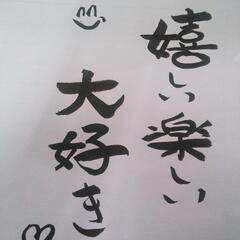 嬉しい楽しい
大好き